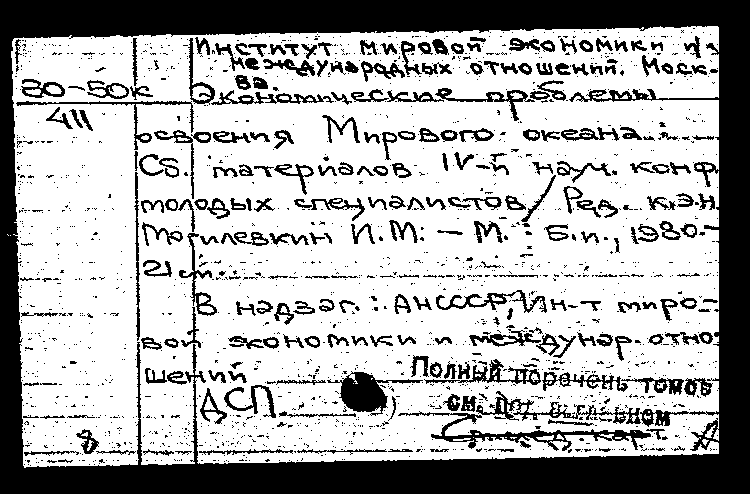 Институт мировой экономики и
международных отношений. Моск-
ва.
80-50к Экономические проблемы
411
освоения Мирового океана:
Сб. материалов IV-й науч. конф.
молодых специалистов / Ред. к.э.н.
Могилевкин И.М. – М. : Б.и., 1980.–
21 см.
В надзаг.: АН СССР, Ин-т миро-
вой экономики и междунар. отно-
шений
ДСП.
Полный перечень томов
см. под. главном
8